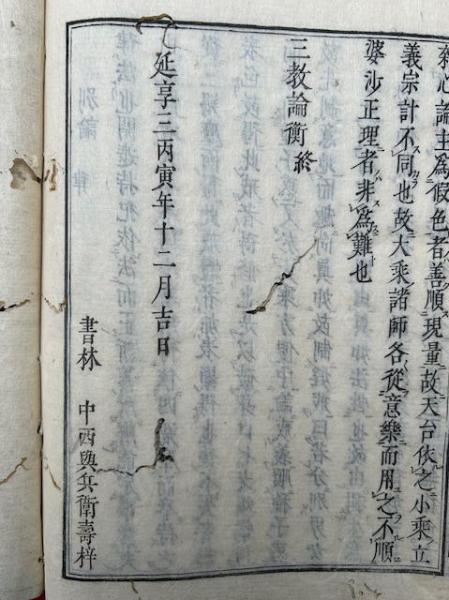 雜心論主爲假色者善順現量故天台依之小乘立
義宗計不同也故大乘諸師各從意樂而用之不順
婆沙正理者非爲難也
三教論衡終
延享三丙寅年十二月吉日
書林 中西與兵衛壽梓